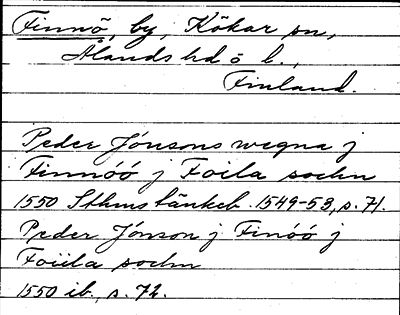 Finnö, by, Kökar sn,
Ålands hd o l.,
Finland.
Peder Jónsons wegna j
Finnóó j Foila sochn
1550 Sthms tänkeb. 1549-53, s. 71.
Peder Jónson j Finóó j
Foiila sochn
1550 ib., s. 72.